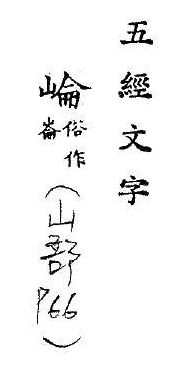 五經文字
崘俗作
崙
(山部
P66)